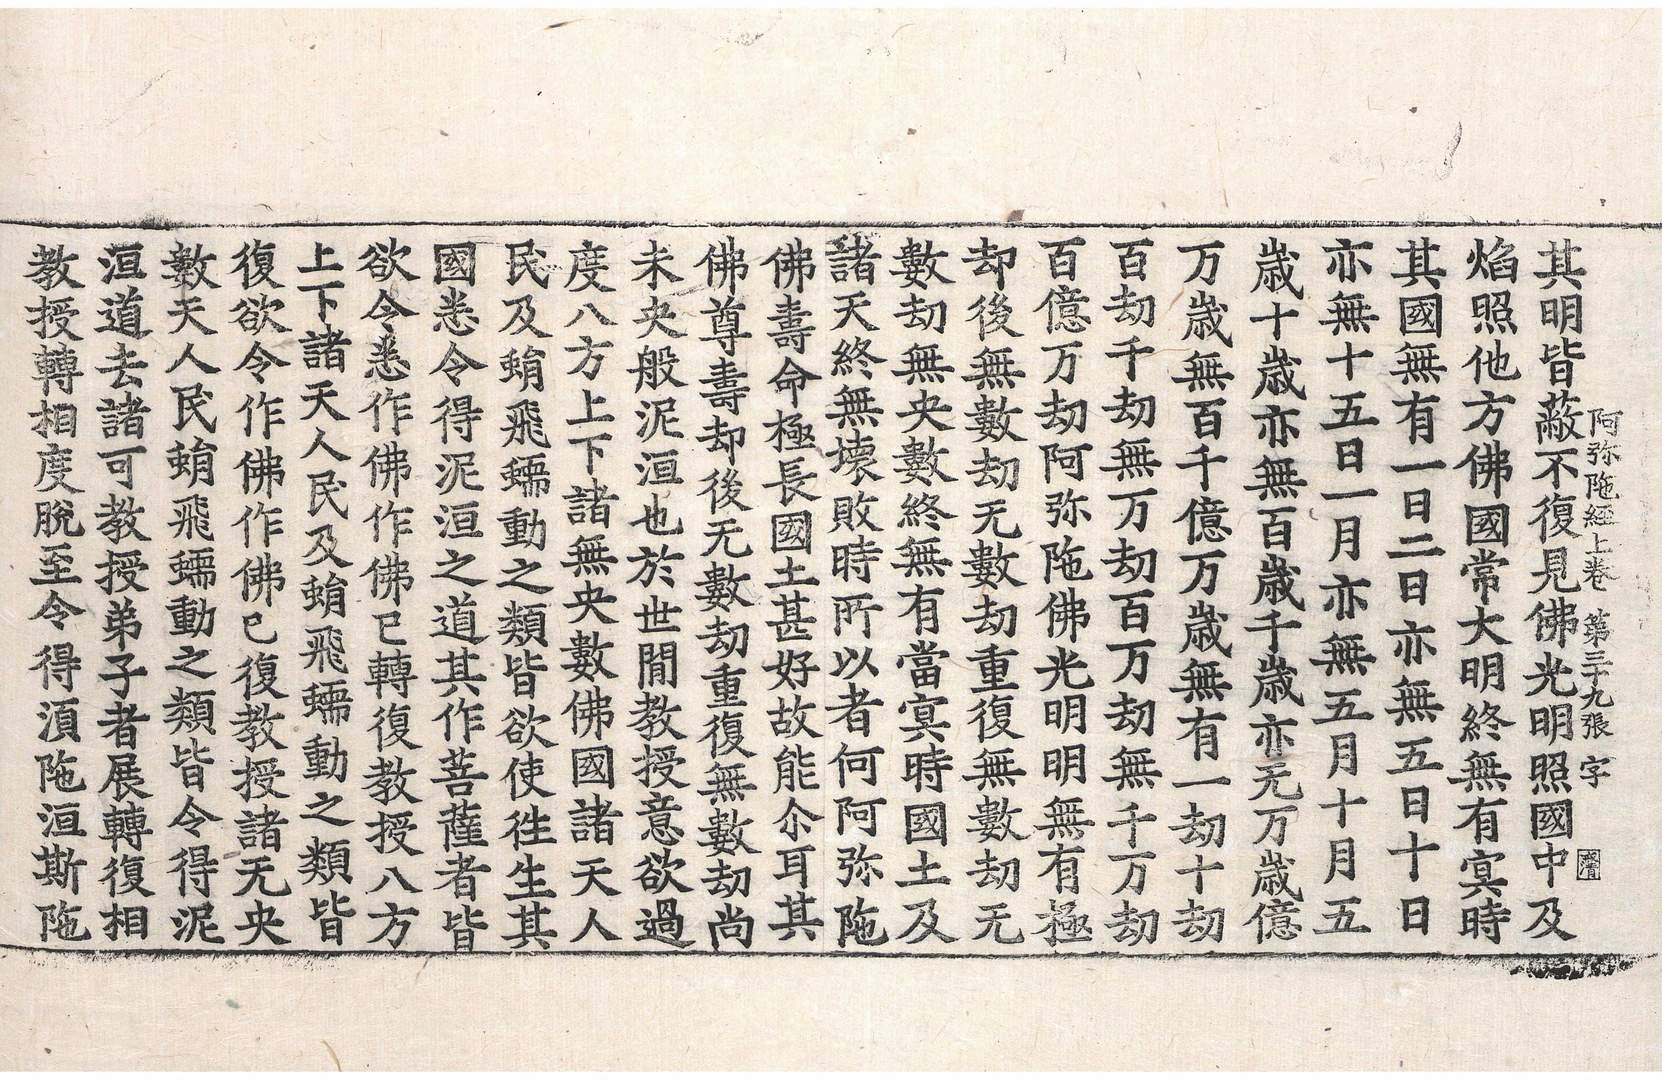 阿弥陁經上卷 第三十九張 字
其明皆蔽不復見佛光明照國中及
焰照他方佛國常大明終無有冥時
其國無有一日二日亦無五日十日
亦無十五日一月亦無五月十月五
歳十歳亦無百歳千歳亦无万歳億
万歳無百千億万歳無有一劫十劫
百劫千劫無万劫百万劫無千万劫
百億万劫阿弥陁佛光明明無有極
却後無數劫无數劫重復無數劫无
數劫無央數終無有當冥時國土及
諸天終無壞敗時所以者何阿弥陁
佛壽命極長國土甚好故能尒耳其
佛尊壽却後无數劫重復無數劫尚
未央般泥洹也於世間教授意欲過
度八方上下諸無央數佛國諸天人
民及蜎飛蠕動之類皆欲使徃生其
國悉令得泥洹之道其作菩薩者皆
欲令悉作佛作佛已轉復教授八方
上下諸天人民及蜎飛蠕動之類皆
復欲令作佛作佛已復教授諸无央
數天人民蜎飛蠕動之類皆令得泥
洹道去諸可教授弟子者展轉復相
教授轉相度脫至令得湏陁洹斯陁